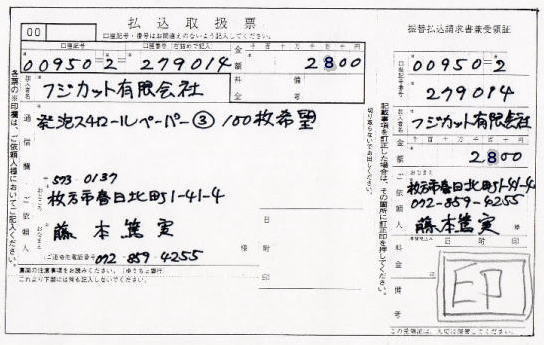 00
払込取扱票
口座記号・番号はお間違えのないよう記入してください。
口座記号 口座番号(右詰めで記入)
00950=2= 279014
金額 千 百 十 万 千 百 十 円
2800
加入者名 フジカット有限会社
料金 備考
通信欄
発泡スチロールペーパー③ 100枚希望
ご依頼人
573-0137
枚方市春日北町51-41-4
藤本篤実 様
ご連絡先電話番号 072-859-4255
日附印
裏面の注意事項をお読みください。(ゆうちょ銀行)
これより下部には何も記入しないでください。
各票の※印欄は、ご依頼人様においてご記入ください。
切り取らないでお出しください。
記載事項を訂正した場合は、その箇所に訂正印を押してください。
振替払込請求書兼受領証
口座記号番号
00950=2
279014
加入者名 フジカット有限会社
金額 千 百 十 万 千 百 十 円
2800
ご依頼人 おなまえ
枚方市春日北町51-41-4
072-859-4255
藤本篤実 様
料金 日附印
備考
印
この受領証は、大切に保管してください。